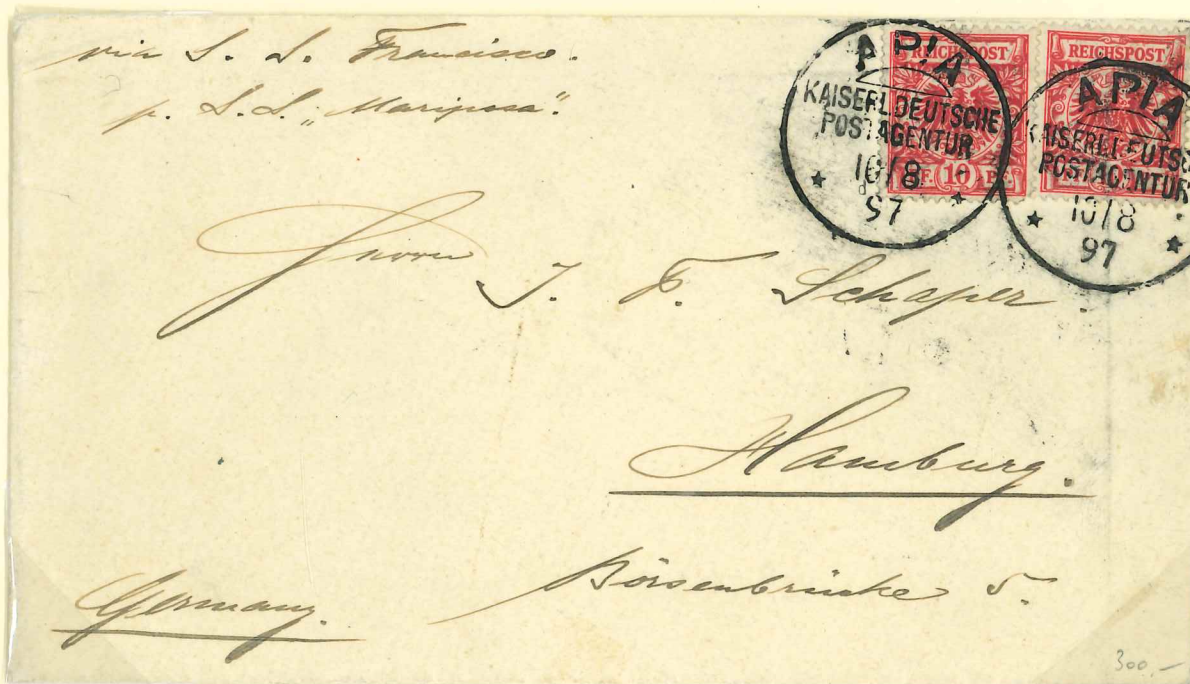 via S. S. Francisco.
p. S.S. „Mariposa".
REICHSPOST
PF. 10 PF.
REICHSPOST
APIA
KAISERL. DEUTSCHE
POSTAGENTUR
10/8
97
APIA
KAISERL. DEUTS
POSTAGENTUR
10/8
97
Herrn
J. F. Schaper
Hamburg.
Börsenbrücke 5.
Germany.
300,–